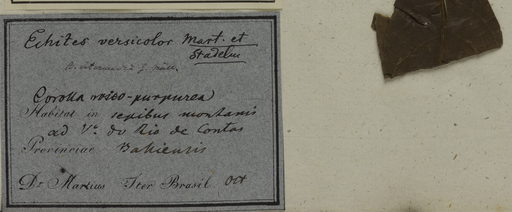 Echites versicolor Mart. et
Stadelm
β. intermedia J. Müll.
Corolla roseo-purpurea
Habitat in sepibus montanis
ad Va. do Rio de Contas
Provinciae Bahiensis
Dr. Martius Iter Brasil. Oct